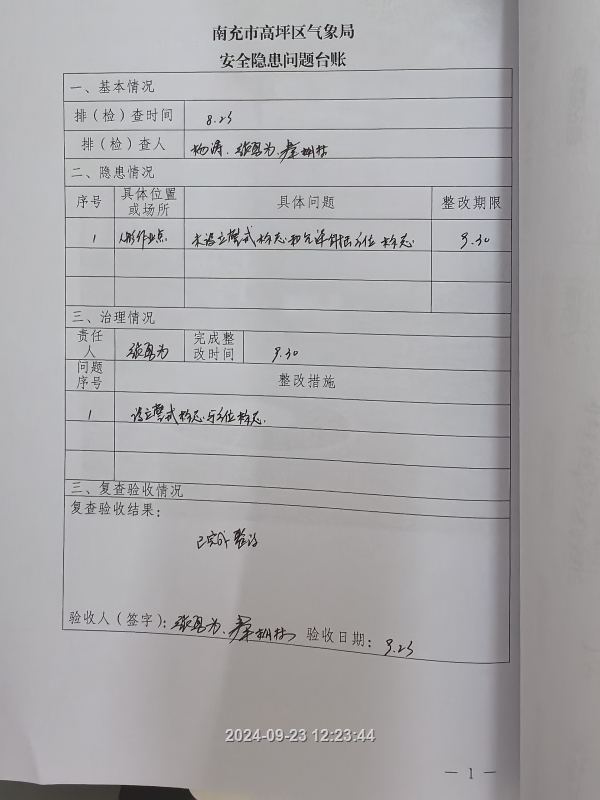 南充市高坪区气象局
安全隐患问题台账
一、基本情况
排（检）查时间 8.23
排（检）查人 杨涛、
二、隐患情况
序号 具体位置或场所 具体问题 整改期限
1 作业点 未设立警式标志和允许射击方位标志 9.30
三、治理情况
责任人 完成整改时间 9.30
问题序号 整改措施
1 设立警式标志与方位标志.
三、复查验收情况
复查验收结果：
已完成整改
验收人（签字）： 验收日期：9.23
2024-09-23 12:23:44
— 1 —